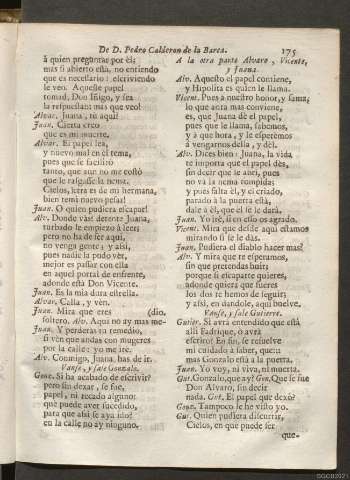 De D. Pedro Calderon de la Barca. 175
à quien preguntas por èl;
mas si abierto està, no entiendo
que es necessario: el criviendo
le veo. Aqueste papel
tomad, Don Iñigo, y sea
la respuesta mas que veo!
Alvar. Juana, tù aqui?
Juan. Cierta creo
que es mi muerte.
Alvar. El papel lea,
y nuevo mal en èl tema,
pues que se facilitò
tanto, que aun no me costò
que le rasgasse la nema.
Cielos, letra es de mi hermana,
bien temì nuevo pesar!
Juan. O quien pudiera escapar!
Alv. Donde vàs? detente Juana,
turbado le empiezo à leer;
pero no ha de ser aqui,
no venga gente; y assi,
pues nadie la pudo vèr,
mejor es passar con ella
en aquel portal de enfrente,
adonde està Don Vicente.
Juan. Es la mia dura estrella.
Alvar. Calla, y vèn.
Juan. Mira que eres (dio.
soltero. Alv. Aqui no ay mas me-
Juan. Y perderàs tu remedio,
si vèn que andas con mugeres
por la calle: yo me irè.
Alv. Conmigo, Juana, has de ir.
Vanse, y sale Gonzalo.
Gonz. Si ha acabado de escrivir?
pero sin dexar, se fue,
papel, ni recado alguno:
què puede aver sucedido,
para que assi se aya ido?
en la calle no ay ninguno.
A la otra parte Alvaro, Vicente,
y Juana.
Alv. Aquesto el papel contiene,
y Hipolita es quien le llama.
Vicent. Pues à nuestro honor, y fama,
lo que aora mas conviene,
es, que Juana dè el papel,
pues que le llama, sabemos,
y à què hora, y le esperèmos
à vengarnos della, y dèl.
Alv. Dices bien: Juana, la vida
te importa que el papel dès,
sin decir que le abrì, pues
no và la nema rompida:
y pues falta èl, y el criado,
parado à la puerta està,
dale à èl, que èl se le darà.
Juan. Yo irè, si en esso os agrado.
Vicent. Mira que desde aqui estamos
mirando si se le dàs.
Juan. Pudiera el diablo hacer mas?
Alv. Y mira que te esperamos,
sin que pretendas huir;
porque si escaparte quieres,
adonde quiera que fueres
los dos te hemos de seguir;
y assi, en dandole, aqui buelve.
Vanse, y sale Gutierre.
Gutier. Si avrà entendido que està
alli Fadrique, ò avrà
escrito? En fin, se resuelve
mi cuidado à saber, que
mas Gonzalo està à la puerta.
Juan. Yo voy, ni viva, ni muerta.
Gut. Gonzalo, què ay? Gon. Que se fue
Don Alvaro, sin decir
nada. Gut. El papel què dexò?
Gonz. Tampoco le he visto yo.
Gut. Quien pudiera discurrir,
Cielos, en què puede ser
que-